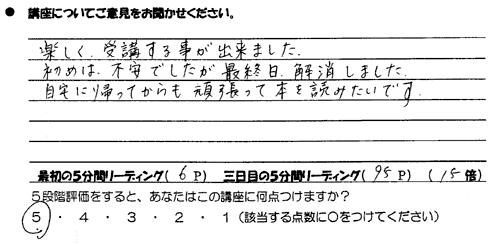 ● 講座についてご意見をお聞かせください。
楽しく、受講する事が出来ました。
初めは、不安でしたが最終日、解消しました。
自宅に帰ってからも頑張って本を読みたいです。
最初の5分間リーディング( 6 P) 三日目の5分間リーディング( 95 P) ( 15 倍)
5段階評価をすると、あなたはこの講座に何点つけますか?
5 ・ 4 ・ 3 ・ 2 ・ 1 (該当する点数に○をつけてください)